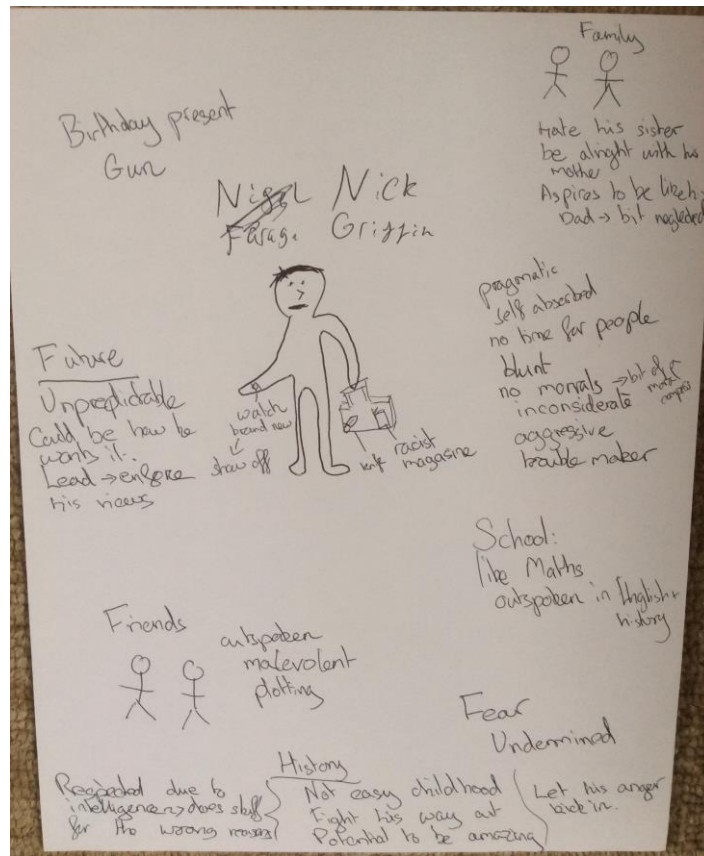 Family
Hate his sister
be alright with his
mother
Aspires to be like
Dad → bit neglected
Birthday present
Gun
Nigel Nick
Farag. Griffin
pragmatic
self absorbed
no time for people
blunt
no monrals → bit of a
moral compass
inconsiderate
aggressive
trouble maker
Future
Unpredictable
Could be how he
wants it.
Lead → enforce
his views
watch
brand new
show off
knife
racist
magasine
School:
like Maths
outspoken in English +
history
Friends
outspoken
malevolent
plotting
Fear
Undermined
History
intelligence → does stuff
for the wrong reasons
Not easy childhood
Fight his way out
Potential to be amazing
Let his anger
kick in.